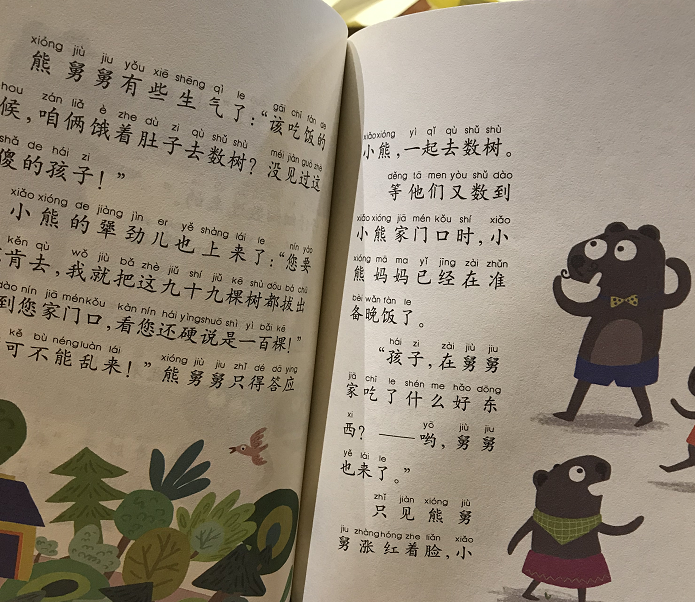 xióng jiù jiu yǒu xiē shēng qì le gāi chī fàn de
熊舅舅有些生气了:“该吃饭的
hou zán liǎ è zhe dù zi qù shǔ shù méi jiàn guò zhè
候,咱俩饿着肚子去数树?没见过这
shǎ de hái zi
傻的孩子!”
xiǎo xióng de jiàng jìn er yě shàng lái le nín yào
小熊的犟劲儿也上来了:“您要
kěn qù wǒ jiù bǎ zhè jiǔ shí jiǔ kē shù dōu bá chū
肯去,我就把这九十九棵树都拔出
dào nín jiā ménkǒu kàn nín hái yìngshuō shì yì bǎi kē
到您家门口,看您还硬说是一百棵!”
kě bù néngluàn lái xióng jiù jiu zhǐ dé dā ying
可不能乱来!”熊舅舅只得答应
xiǎo xióng yì qǐ qù shǔ shù
小熊,一起去数树。
děng tā men yòu shǔ dào
等他们又数到
xiǎo xióng jiā mén kǒu shí xiǎo
小熊家门口时,小
xióng mā ma yǐ jīng zài zhǔn
熊妈妈已经在准
bèi wǎn fàn le
备晚饭了。
hái zi zài jiù jiu
“孩子,在舅舅
jiā chī le shén me hǎo dōng
家吃了什么好东
xi yō jiù jiu
西?——哟,舅舅
yě lái le
也来了。”
zhǐ jiàn xióng jiù
只见熊舅
jiu zhàng hóng zhe liǎn xiǎo
舅涨红着脸,小